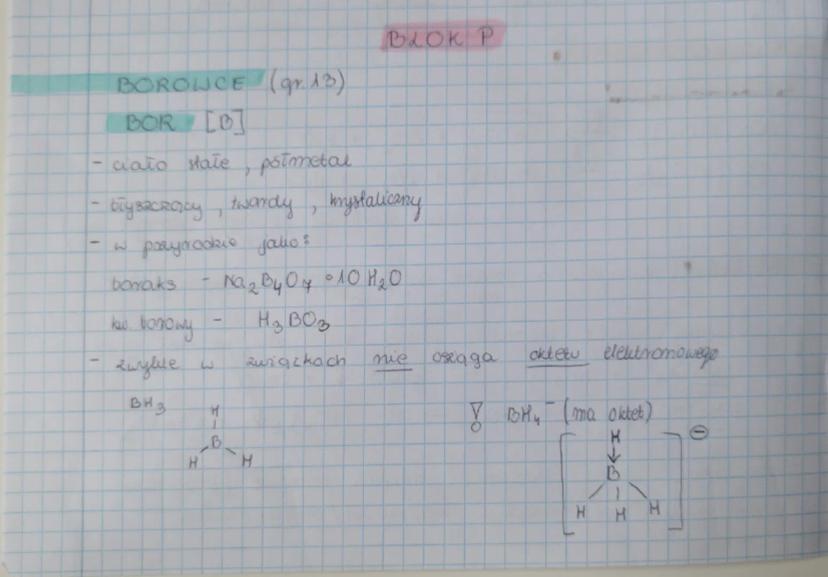 BLOK P
BOROWCE (gr.13)
BOR [B]
- ciało stałe, półmetal
- błyszczący, twardy, krystaliczny
- w przyrodzie jako:
boraks - Na₂B₄O₇ • 10 H₂O
kw. borowy - H₃BO₃
- zwykle w związkach nie osiąga oktetu elektronowego
BH₃
H
B
H H
! BH₄⁻ (ma oktet)
H ⊖
↓
B
H H H